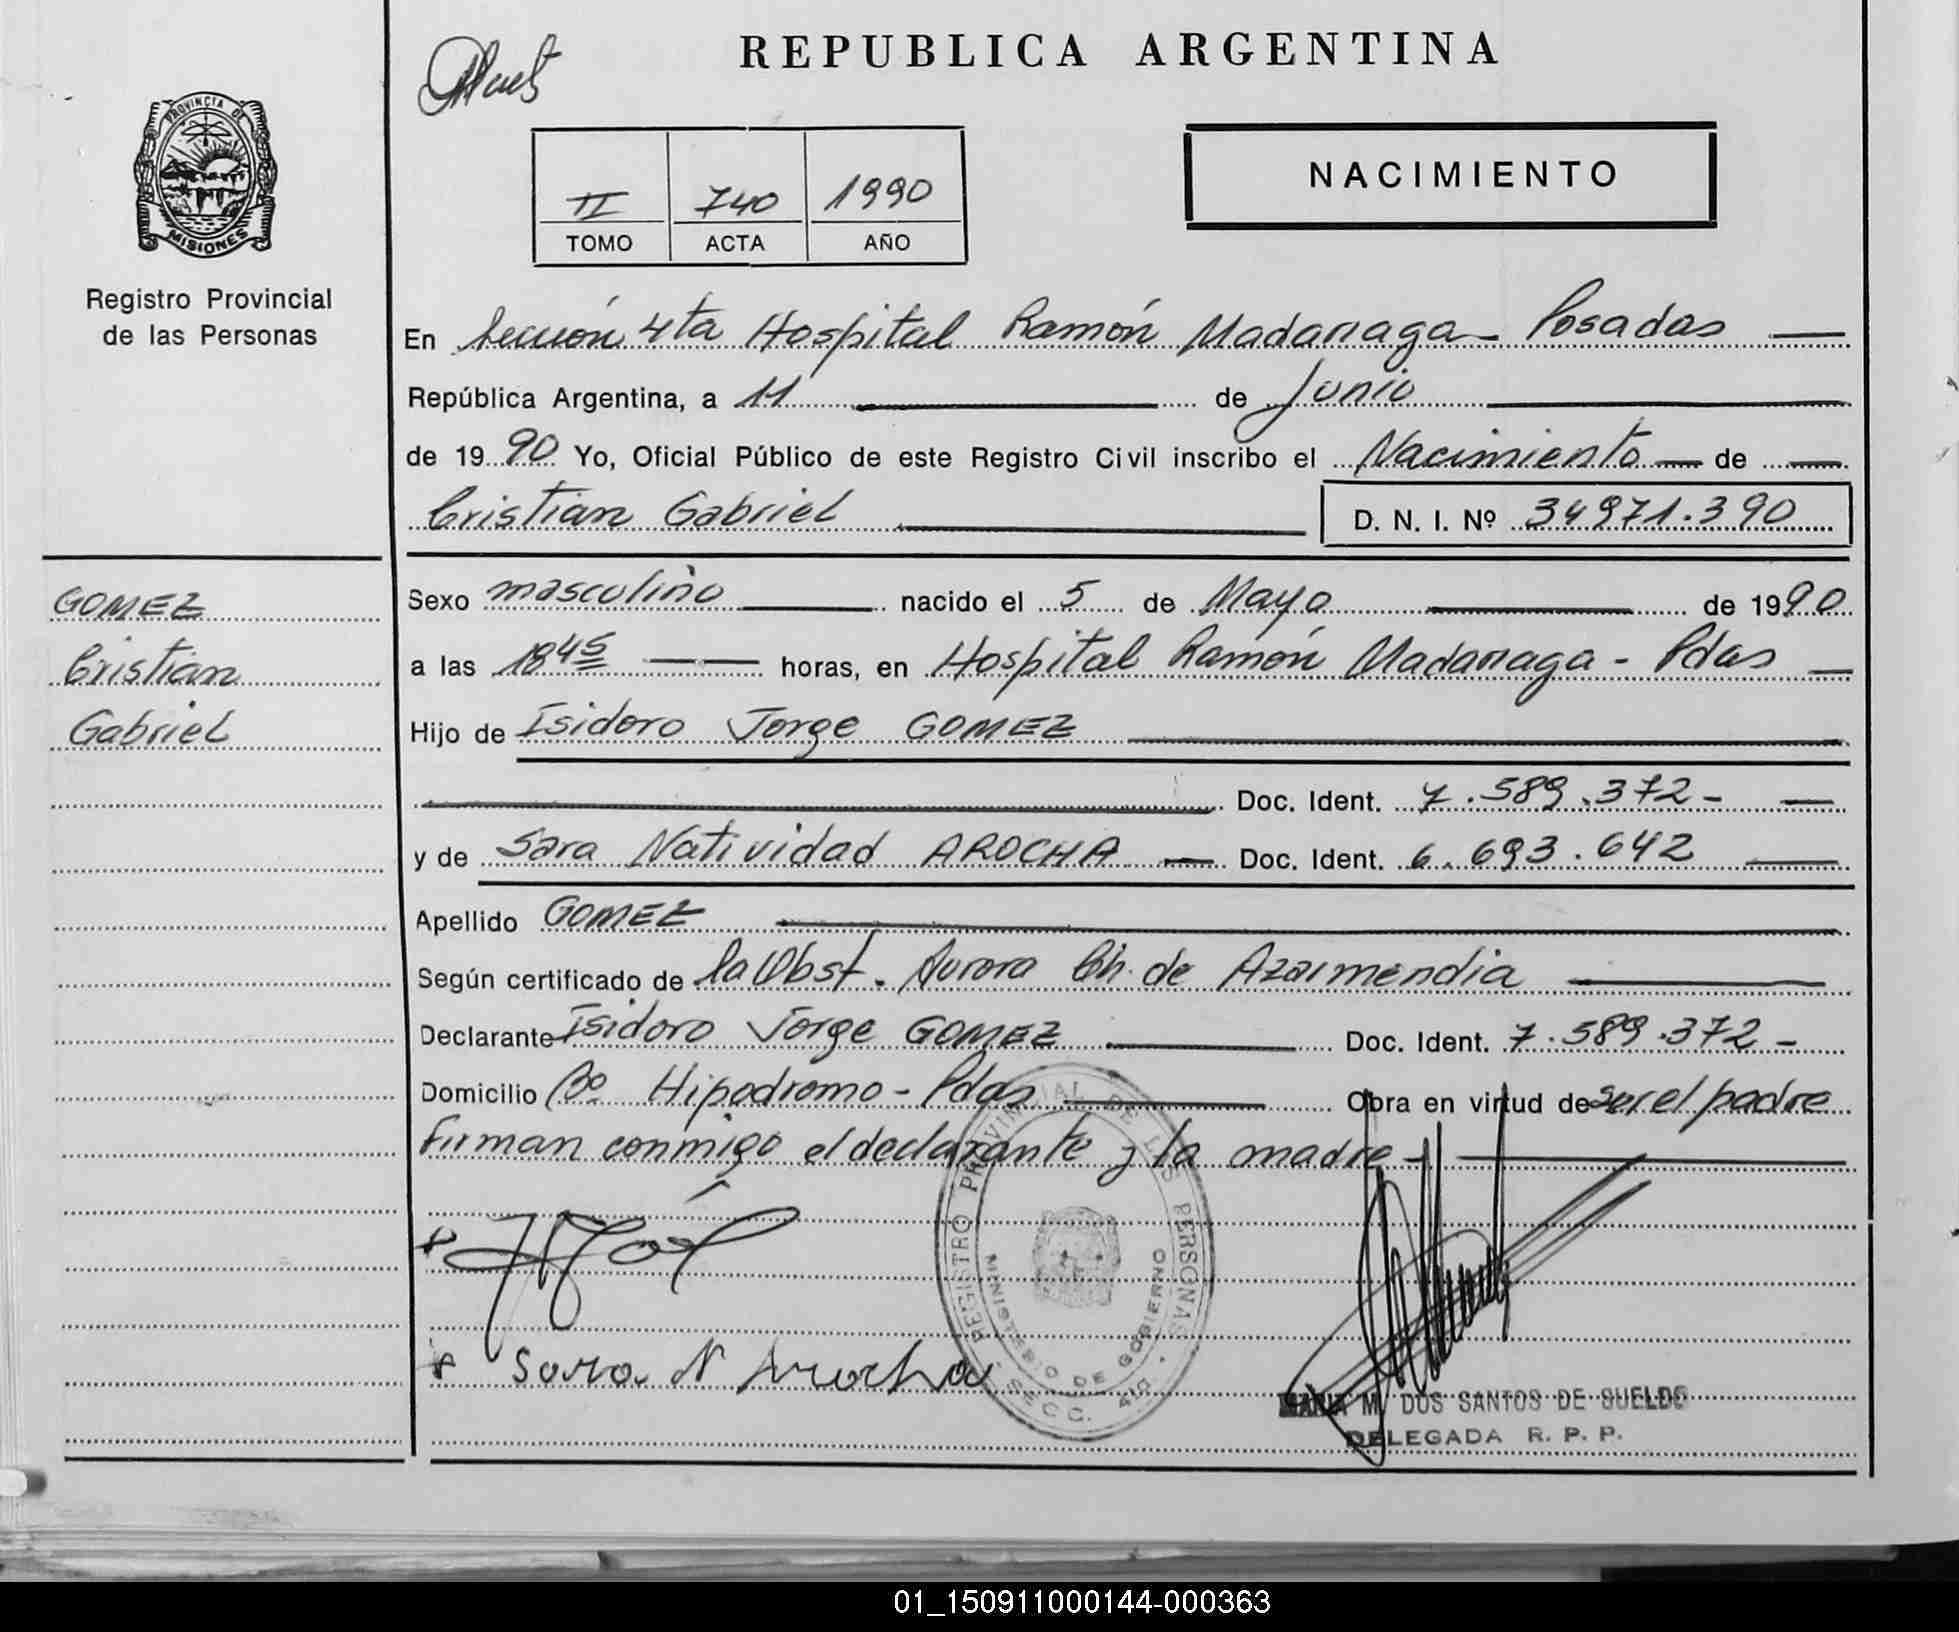 REPUBLICA ARGENTINA
PROVINCIA DE
MISIONES
Registro Provincial
de las Personas
II 740 1990
TOMO ACTA AÑO
NACIMIENTO
En Sección 4ta Hospital Ramón Madariaga - Posadas
República Argentina, a 11 de Junio
de 1990 Yo, Oficial Público de este Registro Civil inscribo el Nacimiento de
Cristian Gabriel D. N. I. Nº 34971.390
GOMEZ
Cristian
Gabriel
Sexo masculino nacido el 5 de Mayo de 1990
a las 18 45 horas, en Hospital Ramón Madariaga - Pdas
Hijo de Isidoro Jorge GOMEZ
Doc. Ident. 7.589.372-
y de Sara Natividad AROCHA Doc. Ident. 6.693.642
Apellido GOMEZ
Según certificado de la Obst. Aurora Ch. de Azarmendia
Declarante Isidoro Jorge GOMEZ Doc. Ident. 7.589.372-
Domicilio Bº Hipodromo - Pdas Obra en virtud de ser el padre
firman conmigo el declarante y la madre-
REGISTRO PROVINCIAL DE LAS PERSONAS
MINISTERIO DE GOBIERNO
SECC. 4ta
Sara N Arocha
MARIA M. DOS SANTOS DE SUELDO
DELEGADA R. P. P.
01_150911000144-000363